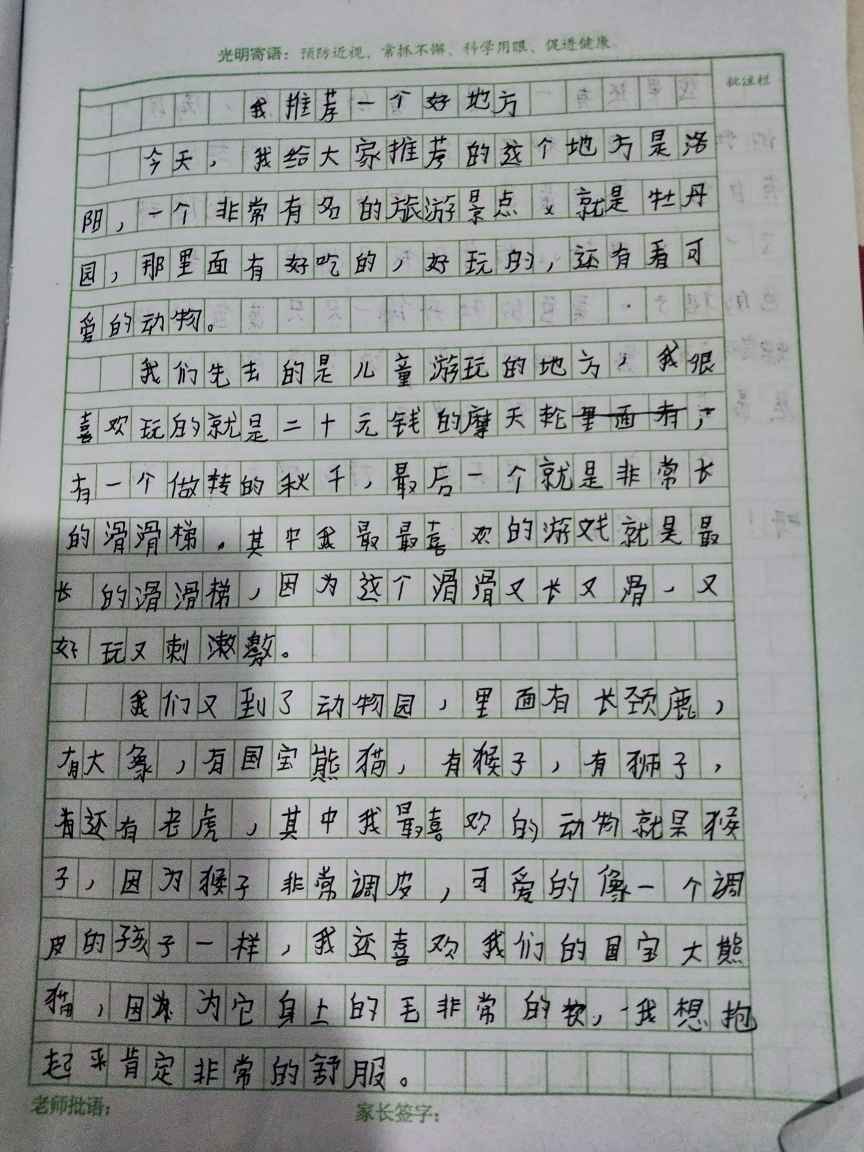 光明寄语：预防近视，常抓不懈，科学用眼、促进健康
批注栏
我推荐一个好地方
今天，我给大家推荐的这个地方是洛
阳，一个非常有名的旅游景点，就是牡丹
园，那里面有好吃的，好玩的，还有看可
爱的动物。
我们先去的是儿童游玩的地方，我很
喜欢玩的就是二十元钱的摩天轮里面有，
有一个做转的秋千，最后一个就是非常长
的滑滑梯。其中我最最喜欢的游戏就是最
长的滑滑梯，因为这个滑滑又长又滑，又
好玩又刺激。
我们又到了动物园，里面有长颈鹿，
有大象，有国宝熊猫，有猴子，有狮子，
有还有老虎，其中我最喜欢的动物就是猴
子，因为猴子非常调皮，可爱的像一个调
皮的孩子一样，我还喜欢我们的国宝大熊
猫，因为它身上的毛非常的软，我想抱
起来肯定非常的舒服。
老师批语：
家长签字：